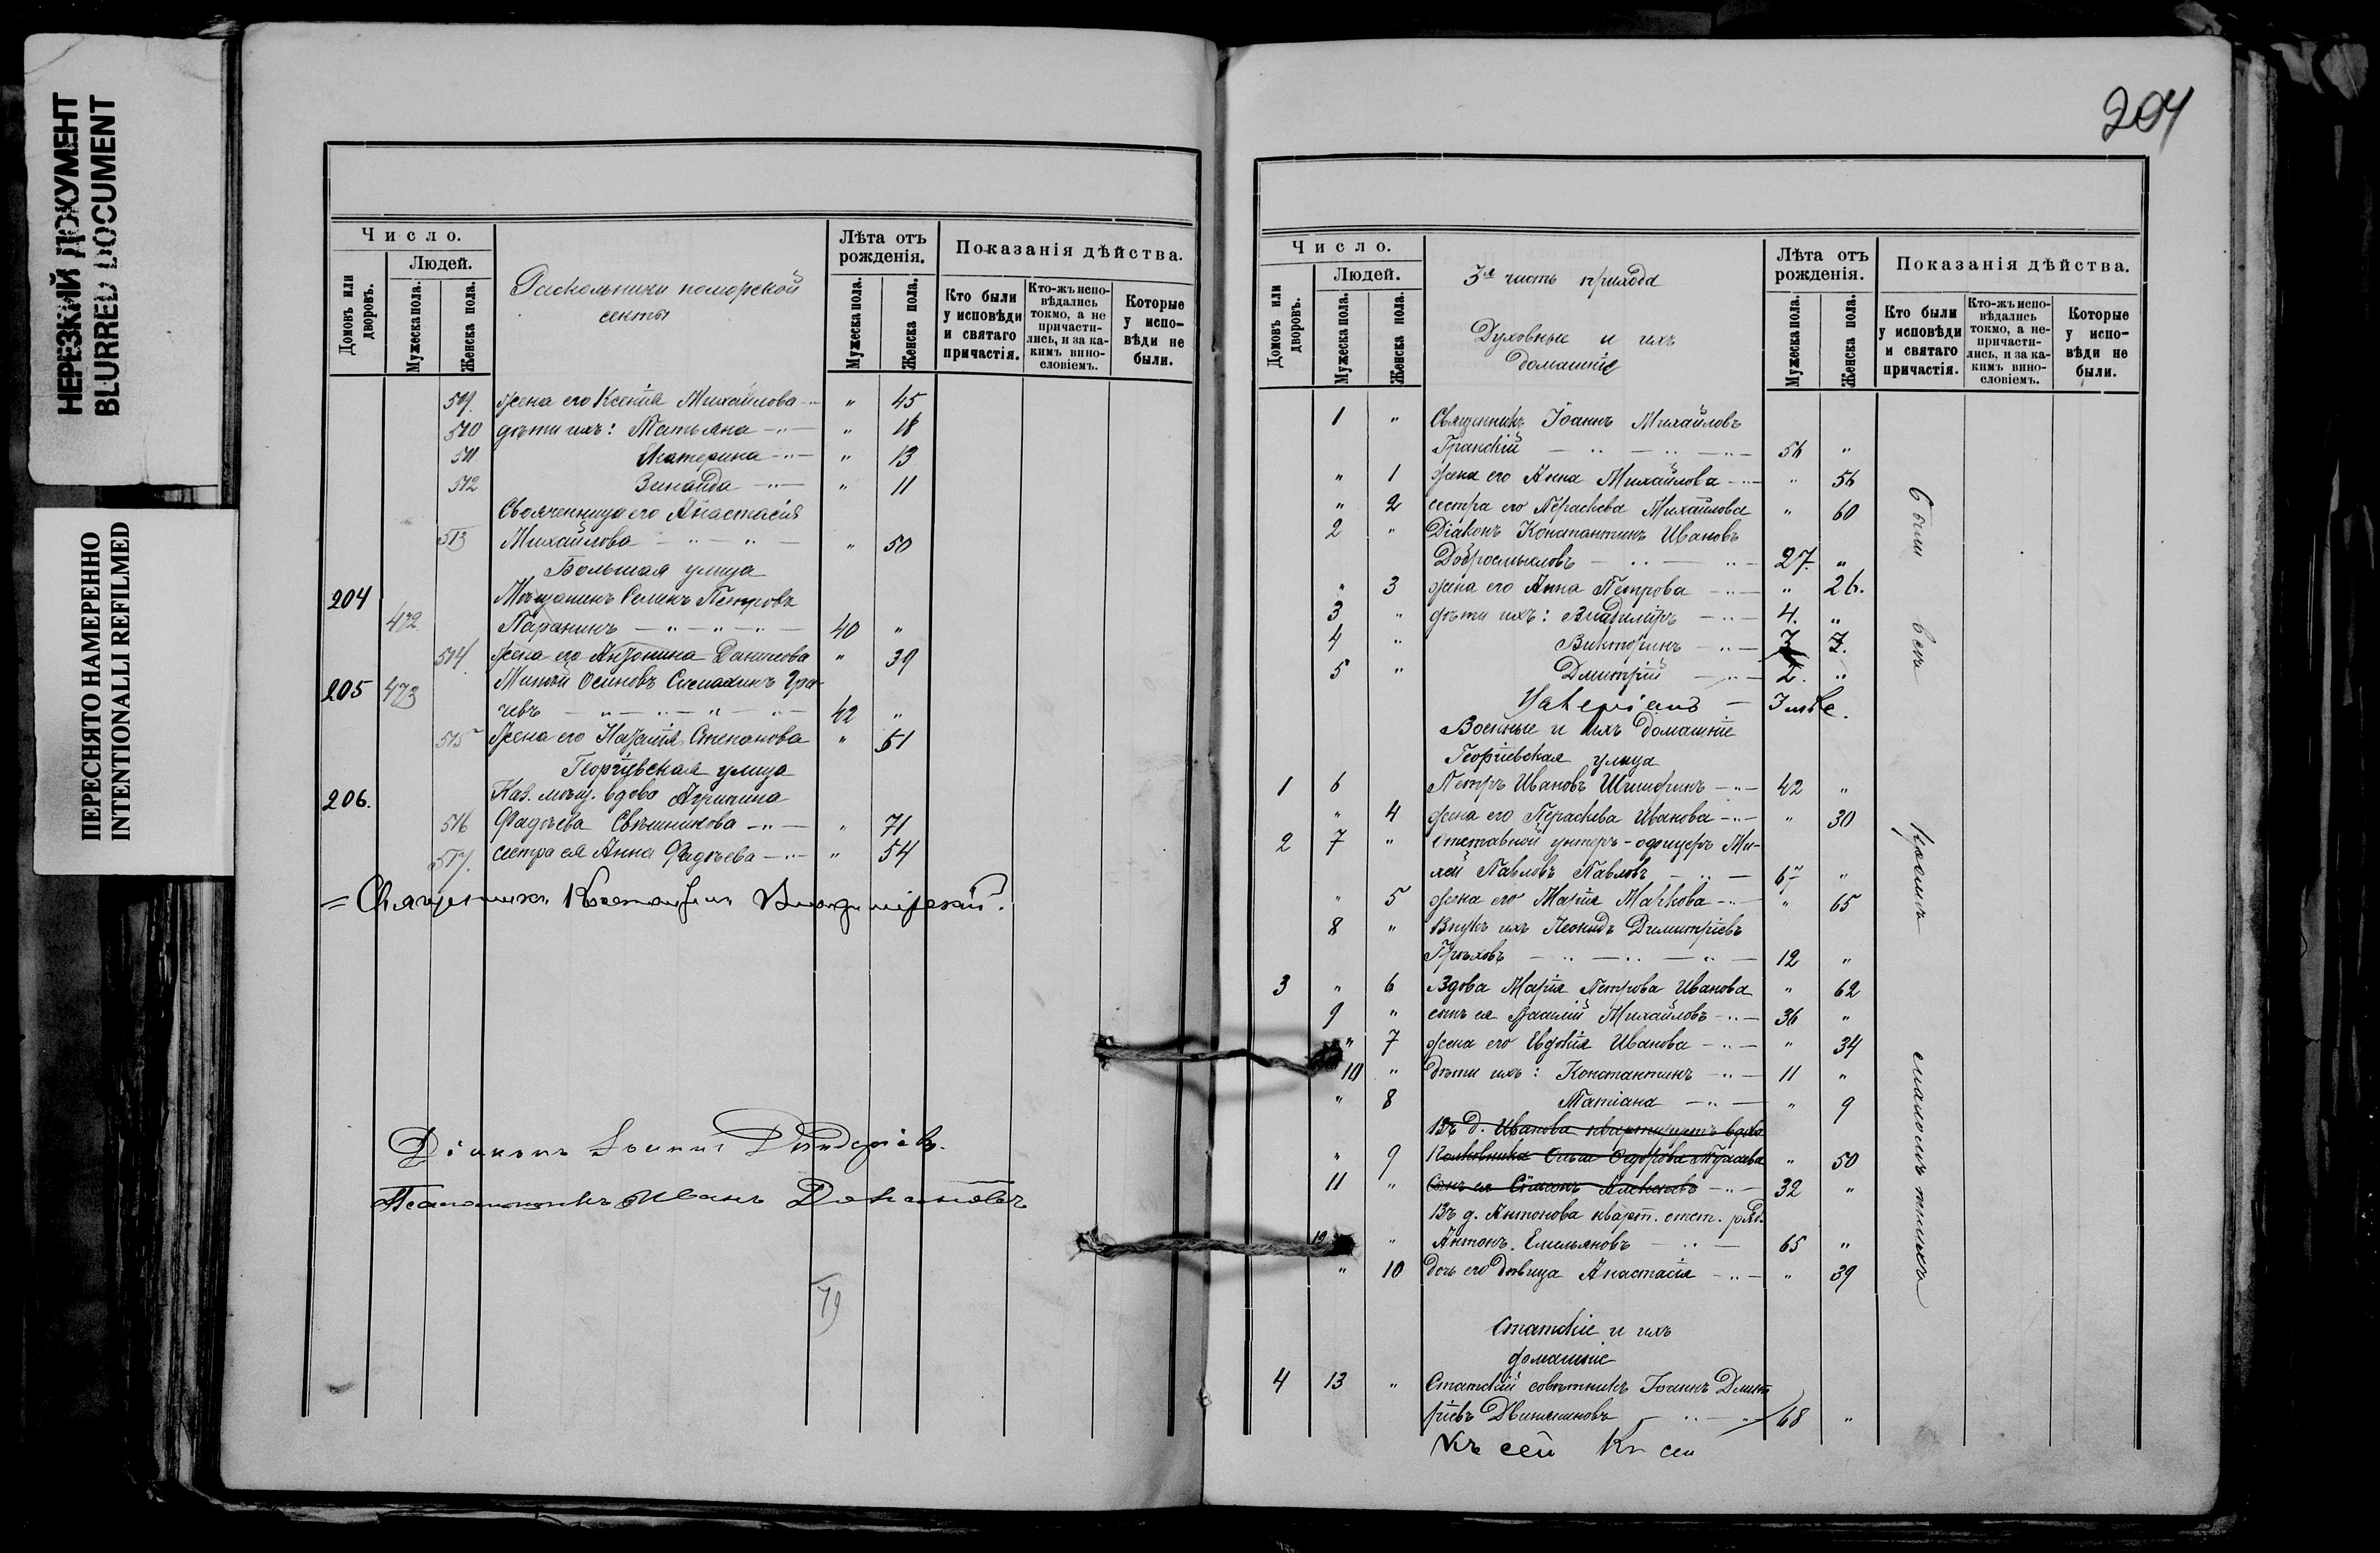 НЕРЕЗКИЙ ДОКУМЕНТ
BLURRED DOCUMENT
ПЕРЕСНЯТО НАМЕРЕННО
INTENTIONALLI REFILMED
Число.
Людей.
Домовъ или дворовъ.
Мужеска пола.
Женска пола.
Раскольники поморской
секты
Лѣта отъ рожденія.
Мужеска пола.
Женска пола.
Показанія дѣйства.
Кто были у исповѣди и святаго причастія.
Кто-жъ исповѣдались токмо, а не причастились, и за какимъ винословіемъ.
Которые у исповѣди не были.
509. жена его Ксенія Михайлова " 45
510 дѣти ихъ: Татьяна " 18
511 Екатерина " 13
512 Зинаида " 11
Свояченица его Анастасія
513 Михайлова " 50
Большая улица
204 Мѣщанинъ Семенъ Петровъ
472 Паранинъ 40 "
514. жена его Антонина Данилова " 39
205 473 Осиповъ
чевъ 42 "
515 жена его Наталія Степанова " 51
Георгіевская улица
206. Каз. мѣщ. вдова Агрипина
516 Фадѣева Свѣшникова " 71
517. сестра ея Анна Фадѣева " 54
= Священникъ Константинъ Владимірскій.
Діаконъ Іоаннъ
Псаломщикъ Иванъ
204
Число.
Людей.
Домовъ или дворовъ.
Мужеска пола.
Женска пола.
3я часть прихода
Духовные и ихъ
домашніе
Лѣта отъ рожденія.
Мужеска пола.
Женска пола.
Показанія дѣйства.
Кто были у исповѣди и святаго причастія.
Кто-жъ исповѣдались токмо, а не причастились, и за какимъ винословіемъ.
Которые у исповѣди не были.
1 " Священникъ Іоаннъ Михайловъ
Гранскій 56 "
" 1 жена его Анна Михайлова " 56
" 2 сестра его Параскева Михайлова " 60
2 " Діаконъ Константинъ Ивановъ
Добросмысловъ 27. "
" 3 жена его Анна Петрова " 26.
3 " дѣти ихъ: Владиміръ 4. "
4 " Викторинъ
5 " Димитрій 2. "
Военные и ихъ домашніе
Георгіевская улица
1 6 Петръ Ивановъ 42 "
" 4 жена его Параскева Иванова " 30
2 7 " Отставной унтеръ-офицеръ Ми-
хей Павловъ Павловъ 67 "
" 5 жена его Марія Маркова " 65
8 " Внукъ ихъ Леонидъ Димитріевъ
Гроховъ 12 "
3 " 6 Вдова Марія Петрова Иванова " 62
9 " сынъ ея Василій Михайловъ 36 "
" 7 жена его Евдокія Иванова " 34
10 " дѣти ихъ: Константинъ 11 "
" 8 Татіана " 9
Въ д. Иванова квартируетъ вдова
" 9 Полковника " 50
11 " Сынъ ея 32 "
Въ д. Антонова кварт. отст. ряд.
12 " Антонъ Емельяновъ 65 "
" 10 дочь его дѣвица Анастасія " 39
Статскіе и ихъ
домашніе
4 13 " Статскій совѣтникъ Іоаннъ Димит
ріевъ 68 "
Къ сей Къ сей